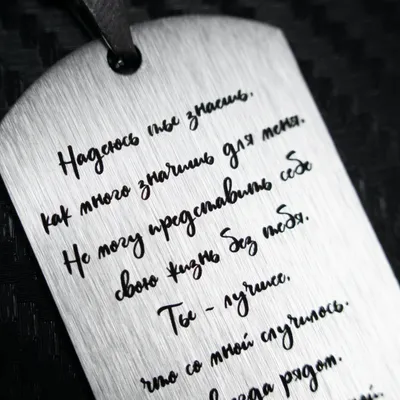 Надеюсь ты знаешь.
как много значишь для меня.
Не могу представить себе
свою жизнь без тебя.
Ты - лучшее.
что со мной случилось.
рядом.